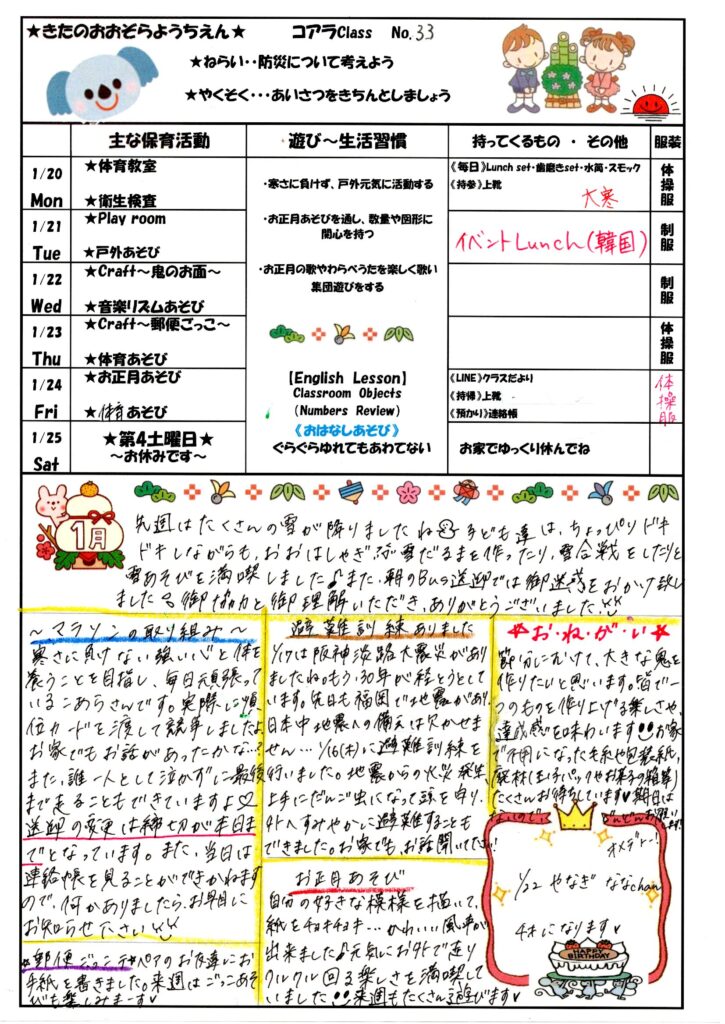 ★きたのおおぞらようちえん★ コアラClass No.33
★ねらい・・防災について考えよう
★やくそく・・・あいさつをきちんとしましょう
主な保育活動 遊び～生活習慣 持ってくるもの ・ その他 服装
1/20 Mon
★体育教室
★衛生検査
1/21 Tue
★Play room
★戸外あそび
1/22 Wed
★Craft～鬼のお面～
★音楽リズムあそび
1/23 Thu
★Craft～郵便ごっこ～
★体育あそび
1/24 Fri
★お正月あそび
★体育あそび
1/25 Sat
★第4土曜日★
～お休みです～
・寒さに負けず、戸外元気に活動する
・お正月あそびを通し、数量や図形に
関心を持つ
・お正月の歌やわらべうたを楽しく歌い
集団遊びをする
【English Lesson】
Classroom Objects
(Numbers Review)
《おはなしあそび》
ぐらぐらゆれてもあわてない
《毎日》Lunch set・歯磨きset・水筒・スモック
《持参》上靴
大寒
イベントLunch(韓国)
《LINE》クラスだより
《持帰》上靴
《預かり》連絡帳
お家でゆっくり休んでね
体操服
制服
制服
体操服
体操服
1月
先週はたくさんの雪が降りましたね 子ども達は、ちょっぴりドキ
ドキしながらも、おおはしゃぎ 雪だるまを作ったり、雪合戦をしたりと
雪あそびを満喫しました♪また、朝のBus送迎では御迷惑をおかけ致し
ました 御協力と御理解いただき、ありがとうございました!!
～マラソンの取り組み～
寒さに負けない強い心と体を
養うことを目指し、毎日頑張って
いるこあらさんです。実際に順
位カードを渡して競争しましたよ
お家でもお話があったかな…?
また、誰一人として泣かずに最後
まで走ることもできていますよ♡
送迎の変更は締切が本日ま
でとなっています。また、当日は
連絡帳を見ることができかねます
ので、何かありましたら、お早目に
お知らせ下さい
★郵便ごっこ★ペアのお友達にお
手紙を書きました。来週はごっこあそ
びも楽しみまーす♥
避難訓練ありました
1/17は阪神淡路大震災があり
ましたね。もう、30年が経とうとして
います。先日も福岡で地震があり、
日本中地震への備えは欠かせま
せん… 1/16(木)に避難訓練を
行いました。地震からの火災発生、
上手にだんご虫になって頭を守り、
外へすみやかに避難することも
できました。お家でも、お話聞いて下さい!
お正月あそび
自分の好きな模様を描いて、
紙をチョキチョキ… かわいい風車が
出来ました♪元気にお外で走り
クルクル回る楽しさを満喫して
いました!!来週もたくさん遊びます♥
★お・ね・が・い★
節分にむけて、大きな鬼を
作りたいと思います。皆で一
つのものを作り上げる楽しさや、
達成感を味わいます お家
で不用になった毛糸や包装紙、
廃材(玉子パックやお菓子の箱等)
たくさんお待ちしています♥期日は
ないので
オメデトー!
1/22 やなぎ ななchan
4才になります♥
HAPPY
BIRTHDAY